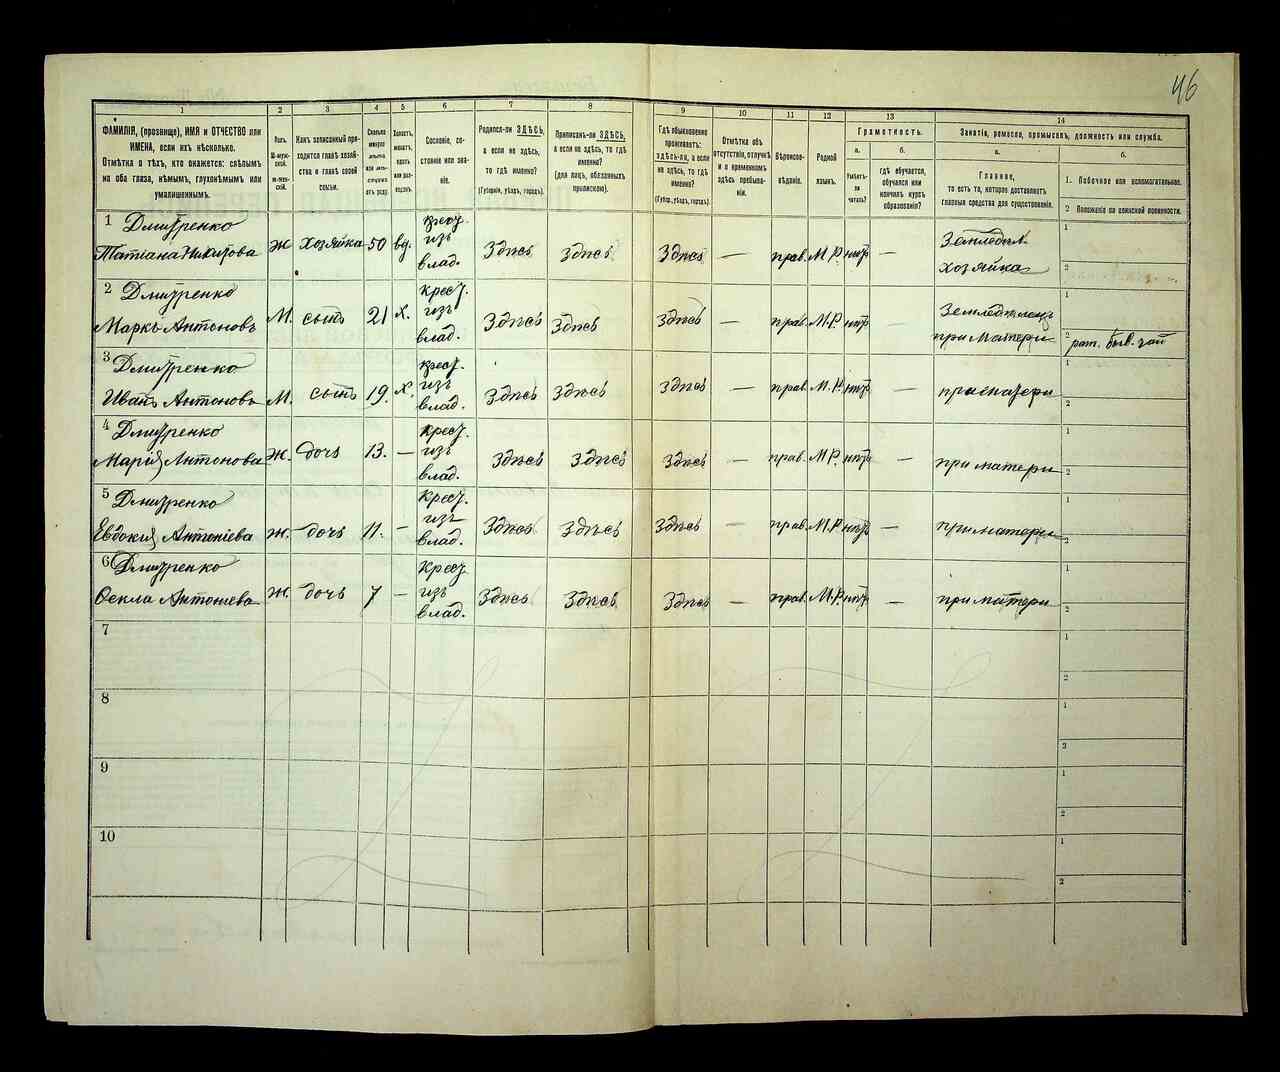 46
1 2 3 4 5 6 7 8 9 10 11 12 13 14
ФАМИЛІЯ, (прозвище), ИМЯ и ОТЧЕСТВО или
ИМЕНА, если ихъ нѣсколько.
Отмѣтка о тѣхъ, кто окажется: слѣпымъ
на оба глаза, нѣмымъ, глухонѣмымъ или
умалишеннымъ.
Полъ.
М-муж-
ской.
Ж-жен-
скій.
Какъ записанный при-
ходится главѣ хозяй-
ства и главѣ своей
семьи.
Сколько
минуло
лѣтъ
или мѣ-
сяцевъ
отъ роду.
Холостъ,
женатъ,
вдовъ
или раз-
веденъ.
Сословіе, со-
стояніе или зва-
ніе.
Родился-ли ЗДѢСЬ,
а если не здѣсь,
то гдѣ именно?
(Губернія, уѣздъ, городъ).
Приписанъ-ли ЗДѢСЬ,
а если не здѣсь, то гдѣ
именно?
(для лицъ, обязанныхъ
припискою).
Гдѣ обыкновенно
проживаетъ:
здѣсь-ли, а если
не здѣсь, то гдѣ
именно?
(Губер., уѣздъ, городъ).
Отмѣтка объ
отсутствіи, отлучкѣ
и о временномъ
здѣсь пребыва-
ніи.
Вѣроиспо-
вѣданіе.
Родной
языкъ.
Грамотность.
а.
Умѣетъ-
ли
читать?
б.
гдѣ обучается,
обучался или
кончилъ курсъ
образованія?
Занятіе, ремесло, промыселъ, должность или служба.
а.
Главное,
то есть то, которое доставляетъ
главныя средства для существованія.
б.
1. Побочное или вспомогательное.
2 Положеніе по воинской повинности.
1 Дмитренко
Татіана Никитова Ж Хозяйка 50 вд. крест. из влад. Здѣсь Здѣсь Здѣсь — прав. М.Р. нѣтъ — Земледѣл. хозяйка 1 2
2 Дмитренко
Маркъ Антоновъ М. сынъ 21 х. крест. изъ влад. Здѣсь Здѣсь Здѣсь — прав. М.Р. нѣтъ — Земледѣлецъ при матери 1 2 рат.
3 Дмитренко
Иванъ Антоновъ М. сынъ 19. х. крест. изъ влад. Здѣсь Здѣсь Здѣсь — прав. М.Р. нѣтъ — при матери 1 2
4 Дмитренко
Марія Антонова Ж. дочь 13. — крест. изъ влад. Здѣсь Здѣсь Здѣсь — прав. М.Р. нѣтъ — при матери 1 2
5 Дмитренко
Евдокія Антоніева ж. дочь 11. — крест. изъ влад. Здѣсь Здѣсь Здѣсь — прав. М.Р. нѣтъ — при матери 1 2
6 Дмитренко
Ѳекла Антоніева ж. дочь 7 — крест изъ влад. Здѣсь Здѣсь Здѣсь — прав. М.Р. нѣтъ — при матери 1 2
7 1 2
8 1 2
9 1 2
10 1 2